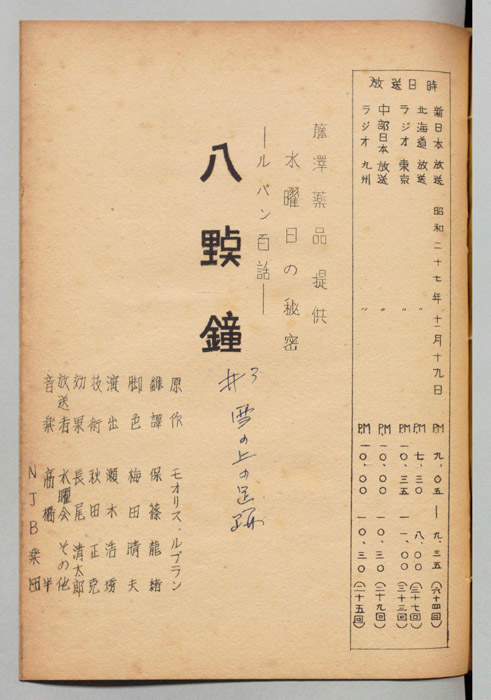 放送日時
新日本放送 昭和二十七年十二月十九日 PM 九.〇五―九.三五(六十四回)
北海道放送 〃 PM 七.三〇 八.〇〇(三十七回)
ラジオ東京 〃 PM 一〇.三五 一一.〇〇(三十三回)
中部日本放送 〃 PM 一〇.〇〇 一〇.三〇(二十九回)
ラジオ九州 〃 PM 一〇.〇〇 一〇.三〇(二十五回)
藤澤薬品提供
水曜日の秘密
―ルパン百話―
八點鐘
#3 雪の上の足跡
原作 モオリス.ルブラン
飜譯 保篠龍緒
脚色 梅田晴夫
演出 瀬木浩
技術 秋田正克
効果 長尾清太郎
放送者 水曜会その他
音楽 高橋半
NJB楽団